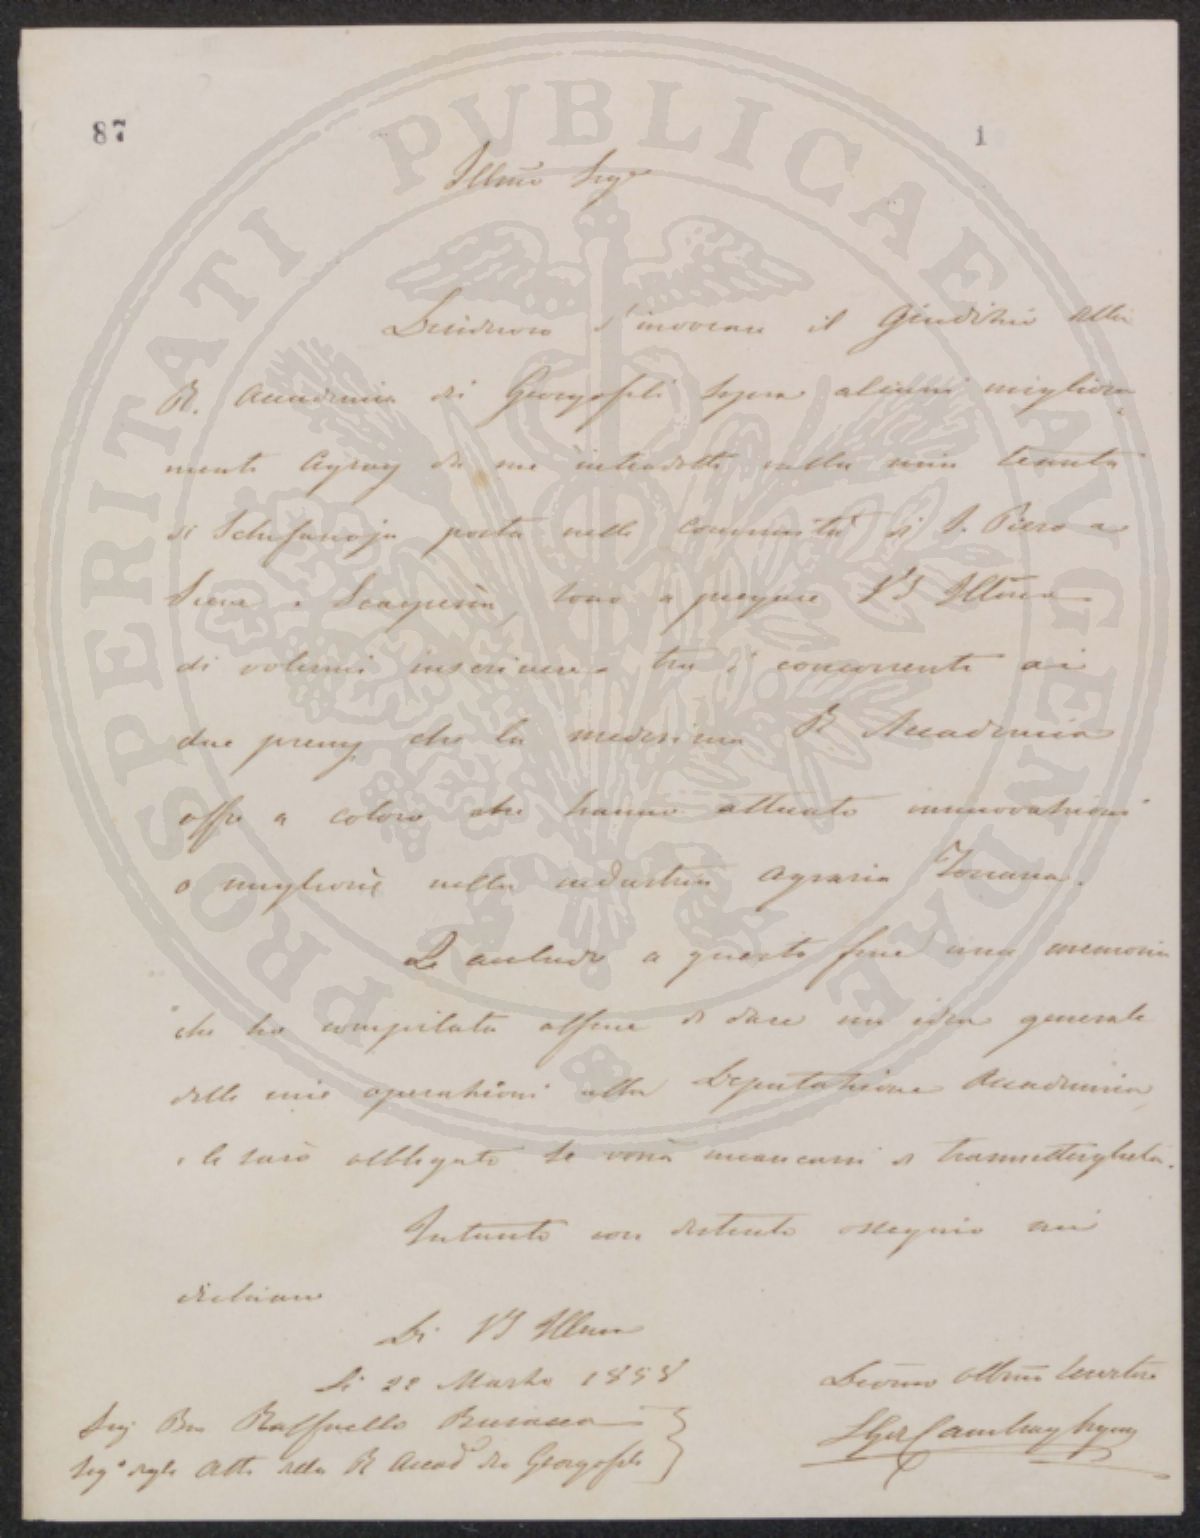 87
1
PROSPERITATI PUBLICAE AUGENDAE
Illmo Sigr
Desideroso d'invocare il Giudizio della
R. Accademia dei Georgofili sopra alcuni migliora
menti Agrarj da me introdotti nella mia tenuta
di Schifanoja posta nelle Comunità di S. Piero a
Sieve e Scarperia, sono a pregare V S Illma
di volermi inscrivere tra i concorrenti ai
due premj che la medesima R Accademia
offre a coloro che hanno attuato innovazioni
o migliorìe nella industria Agraria Toscana.
Le accludo a questo fine una memoria
che ho compilata affine di dare un idea generale
delle mie operazioni alla Deputazione Accademica
e le sarò obbligato se vorrà incaricarsi di trasmettergliela.
Intanto con distinto ossequio mi
dichiaro
Di V S Illma
Li 22 Marzo 1858
Devmo Obbmo Servitore
Cambray Digny
Sig Raffaello Busacca
Sego degli Atti della R Accad dei Georgofili